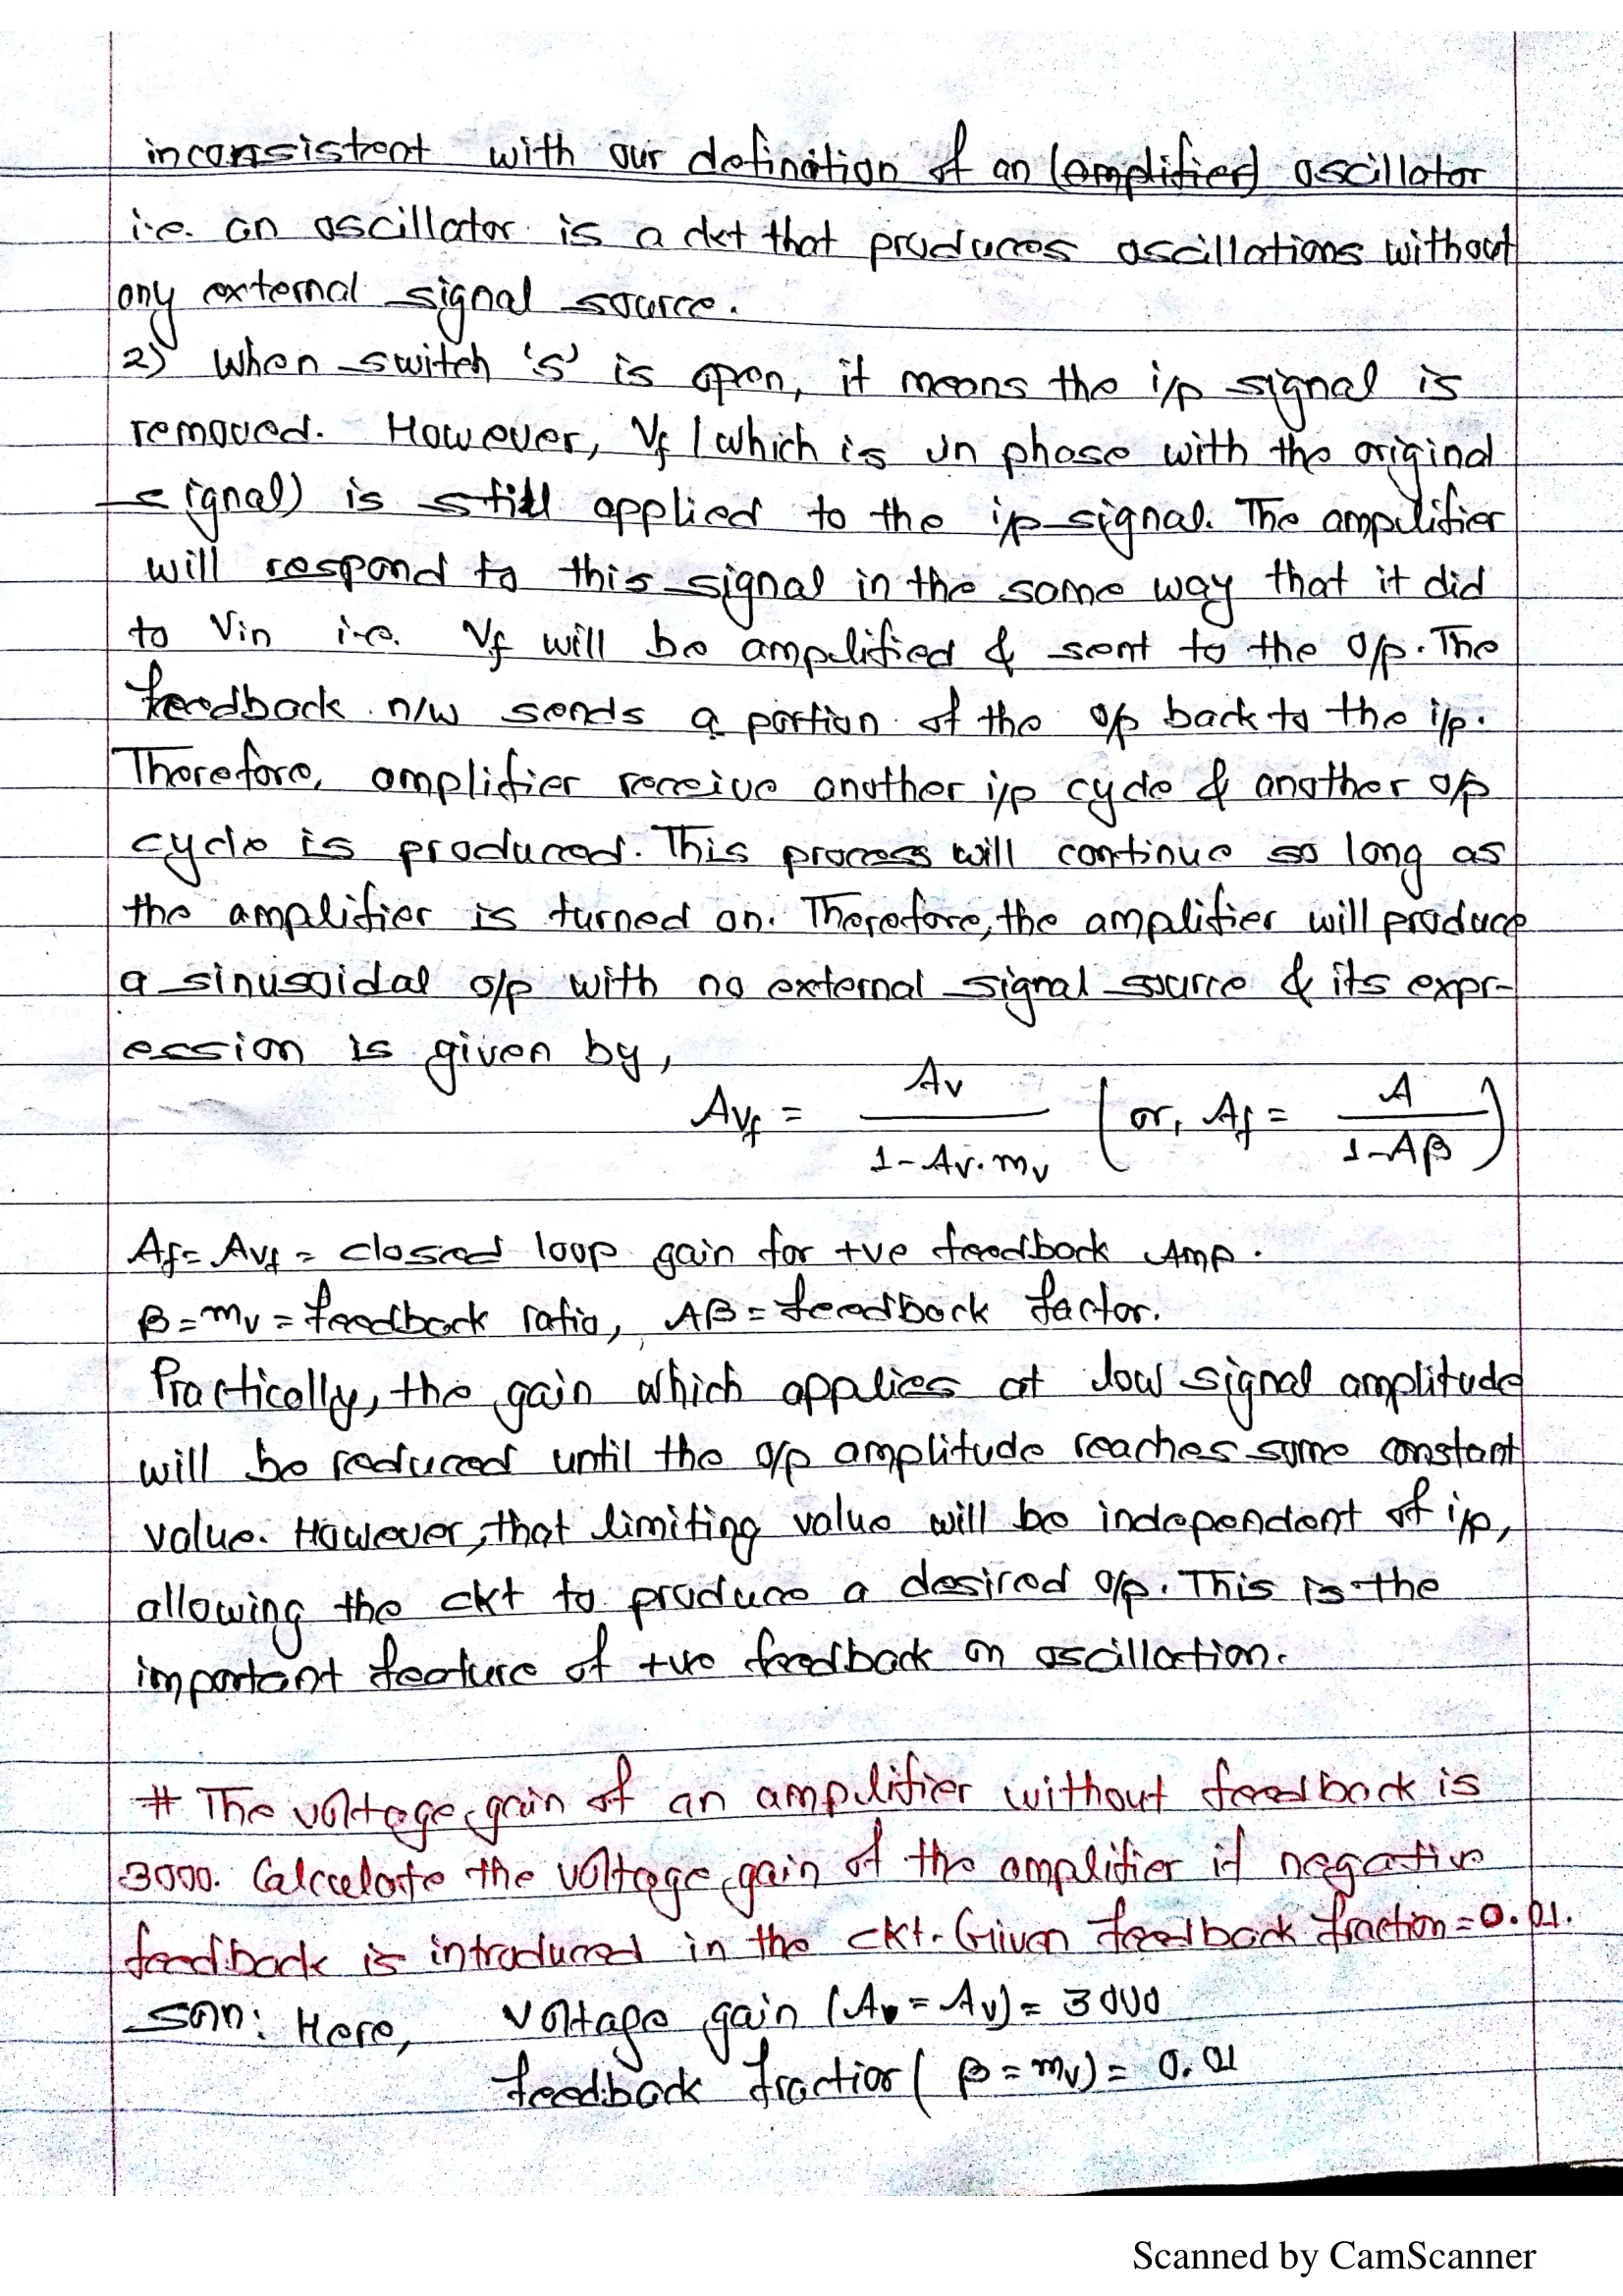 inconsistent with our defination of an (amplifier) oscillator
i.e. an oscillator is a ckt that produces oscillations without
any external signal source.
2) When switch 's' is open, it means the i/p signal is
removed. However, Vf (which is in phase with the original
signal) is still applied to the i/p signal. The amplifier
will respond to this signal in the same way that it did
to Vin i.e. Vf will be amplified & sent to the o/p. The
feedback n/w sends a portion of the o/p back to the i/p.
Therefore, amplifier receive another i/p cycle & another o/p
cycle is produced. This process will continue so long as
the amplifier is turned on. Therefore, the amplifier will produce
a sinusoidal o/p with no external signal source & its expr-
ession is given by,
Avf = Av / 1-Av.mv (or, Af = A / 1-Aβ)
Af = Avf = closed loop gain for +ve feedback Amp.
β = mv = feedback ratio, Aβ = feedback factor.
Practically, the gain which applies at low signal amplitude
will be reduced until the o/p amplitude reaches some constant
value. However, that limiting value will be independent of i/p,
allowing the ckt to produce a desired o/p. This is the
important feature of +ve feedback on oscillation.
# The voltage gain of an amplifier without feedback is
3000. Calculate the voltage gain of the amplifier if negative
feedback is introduced in the ckt. Given feedback fraction = 0.01.
Soln: Here, voltage gain (Av = Av) = 3000
feedback fraction (β = mv) = 0.01
Scanned by CamScanner